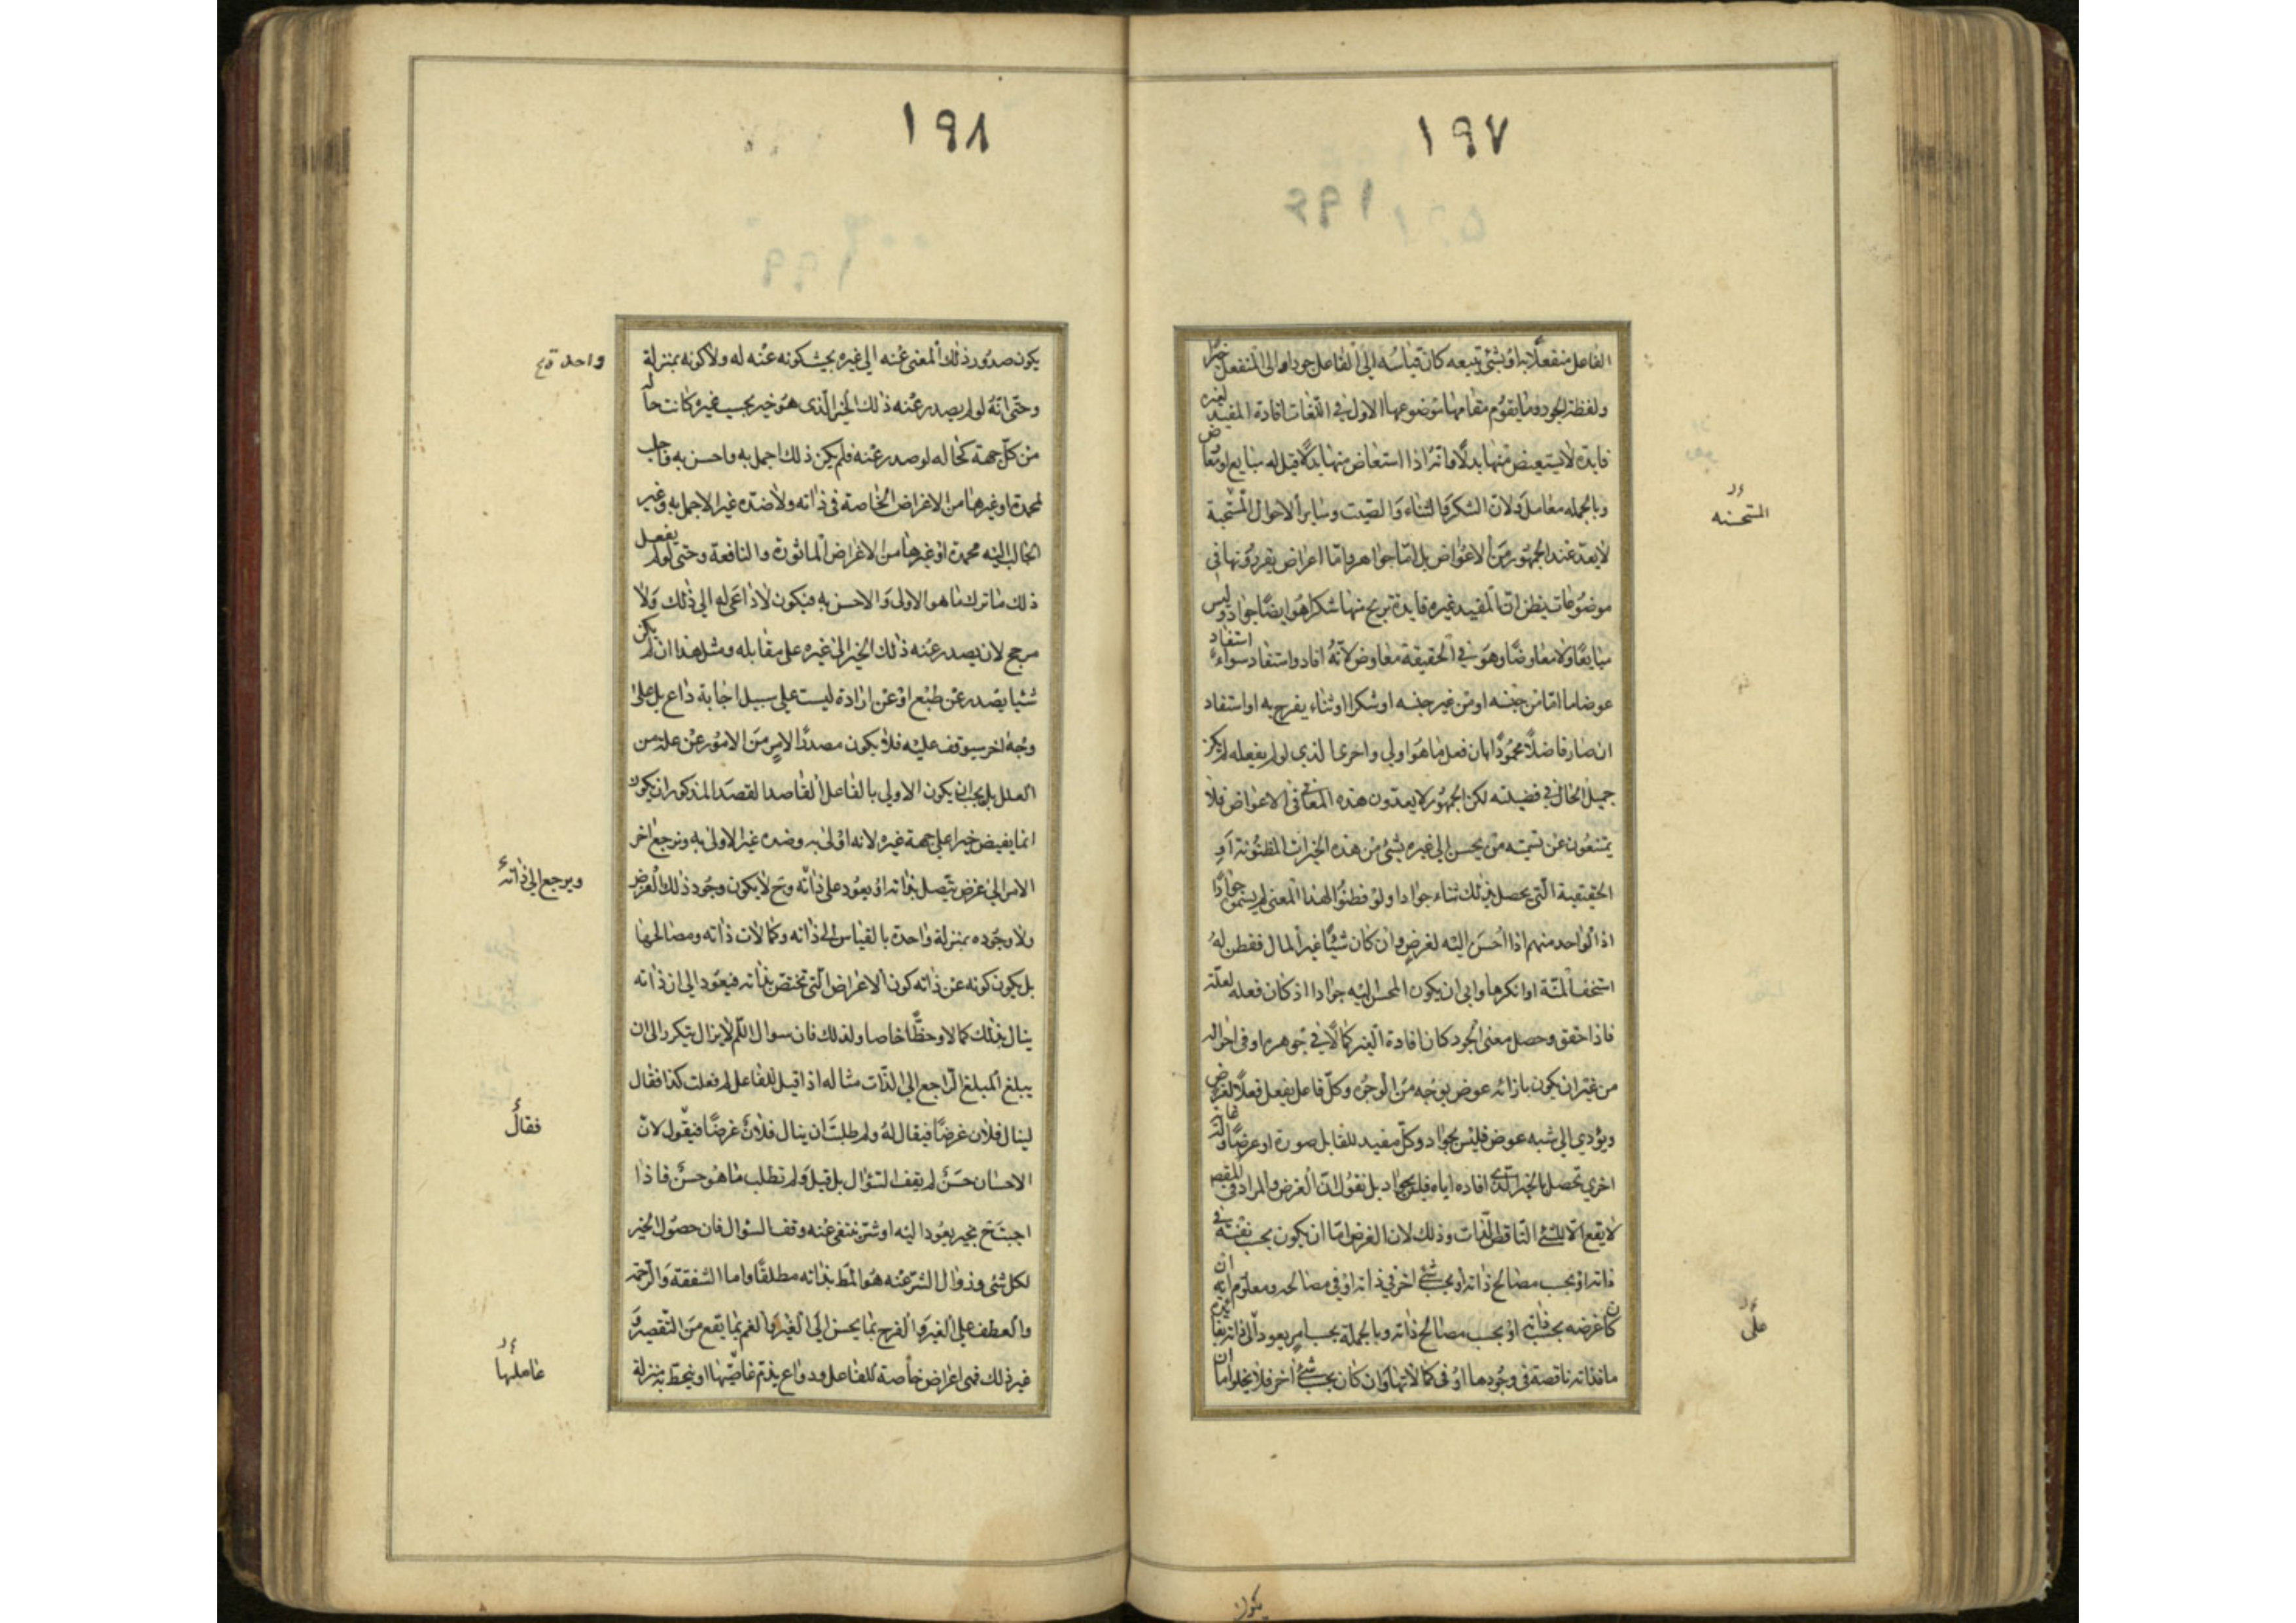 ١٩٧
١٩٦
الفاعل منفعلا به او بشئ يتبعه كان قياسه الى الفاعل جودا والى المنفعل خيرا
ولفظة الجود وما يقوم مقامها موضوعها الاول فى اللغات افادة المفيد لغيره
فايدة لا يستعيض منها بدلا وانه اذا استعاض منها بدلا قيل له مبايع او معاوض
وبالجمله معامل ولان الشكر والثناء والصيت وساير الاحوال المستحبة
المستحسنه
لا يعد عند الجمهور من الاعواض بل اما جواهر واما اعراض يقررونها فى
موضوعات يظن ان المفيد غيره فايدة يربح منها شكرا هو ايضا جواد وليس
مبايعا ولا معاوضا وهو فى الحقيقة معاوض لانه افاد واستفاد سواء استفاد
عوضا ما اما من جنسه او من غير جنسه او شكرا او ثناء يفرح به او استفاد
ان صار فاضلا محمودا بان فعل ما هو اولى واحرى الذى لو لم يفعله لم يكن
جميل الحال فى فضيلته لكن الجمهور لا يعدون هذه المعانى فى الاعواض فلا
يمتنعون عن تسميته من يحسن الى غيره بشئ من هذه الخيرات المظنونة او
الحقيقية التى يحصل بذلك ثناء جوادا ولو فطنوا لهذا المعنى لم يسموه جوادا
اذ الواحد منهم اذا احسن اليه لغرض وان كان شيئا غير المال ففطن له
استخف المنة او انكرها وابى ان يكون المحسن اليه جوادا اذ كان فعله لعلة
فاذا حقق وحصل معنى الجود كان افادة الغير كمالا فى جوهره او فى احواله
من غير ان يكون بازائه عوض بوجه من الوجوه وكل فاعل يفعل فعلا لغرض
ويؤدى الى شبه عوض فليس بجواد وكل مفيد للقابل صورة او عرضا وله غاية
اخرى تحصل بالخير الذى افاده اياه فليس بجواد بل نقول ان الغرض والمراد فى المقصد
لا يقع الا للشئ الناقص الذات وذلك لان الغرض اما ان يكون بحسب نفسه فى
ذاته او بحسب مصالح ذاته او بحسب شئ اخر فى ذاته او فى مصالحه ومعلوم انه ان
كان غرضه بحسب ذاته او بحسب مصالح ذاته وبالجملة بحسب امر يعود الى ذاته
على
ما فذاته ناقصة فى وجودها او فى كمالاتها وان كان بحسب شئ اخر فلا يخلوا اما ان
يكون
١٩٨
١٩٩
يكون صدور ذلك المعنى عنه الى غيره بحيث كونه عنه له ولا كونه بمنزلة
واحدة
وحتى انه لو لم يصدر عنه ذلك الخير الذى هو خير بحسب غيره كانت حاله
من كل جهة كحاله لو صدر عنه فلم يكن ذلك اجمل به واحسن به وجالب
لمحمدة او غيرها من الاغراض الخاصة فى ذاته ولا ضده غير الاجمل به وغير
الجالب اليه محمدة او غيرها من الاغراض الماثورة والنافعة وحتى لو لم يفعل
ذلك ما ترك ما هو الاولى والاحسن به فيكون لا داعى له الى ذلك ولا
مرجح لان يصدر عنه ذلك الخير الى غيره على مقابله ومثل هذا ان لم يكن
شئيا يصدر عن طبع او عن ارادة ليست على سبيل اجابة داع بل على
وجه اخر سيوقف عليه فلا يكون مصدرا لامر من الامور عن علة من
العلل بل يجب ان يكون الاولى بالفاعل القاصد القصد المذكور ان يكون
انما يفيض خيرا على جهة غيره لانه اولى به وضده غير الاولى به ونرجع اخر
الامر الى غرض يتصل بذاته او يعود على ذاته وح لا يكون وجود ذلك الغرض
ويرجع الى ذاته
ولا وجوده بمنزلة واحدة بالقياس الى ذاته وكمالات ذاته ومصالحها
بل يكون كونه عن ذاته كون الاغراض التى تختص بذاته فيعود الى ان ذاته
ينال بذلك كمالا وحظا خاصا ولذلك فان سوال اللم لا يزال يتكرر الى ان
يبلغ المبلغ الراجع الى الذات مثاله اذا قيل للفاعل لم فعلت كذا فقال
لينال فلان غرضا فيقال له ولم طلبت ان ينال فلان غرضا فيقول لان
فقال
الاحسان حسن لم يقف السؤال بل قيل ولم تطلب ما هو حسن فاذا
اجبت ح بخير يعود اليه او شر ينتفى عنه وقف السؤال فان حصول الخير
لكل شئ وزوال الشر عنه هو المط بذاته مطلقا واما الشفقة والرحمة
والعطف على الغير والفرح بما يحسن الى الغير والغم بما يقع من التقصير و
غير ذلك فهى اغراض خاصة للفاعل ودواع يذم عاصيها او ينحط به منزلة
عاملها